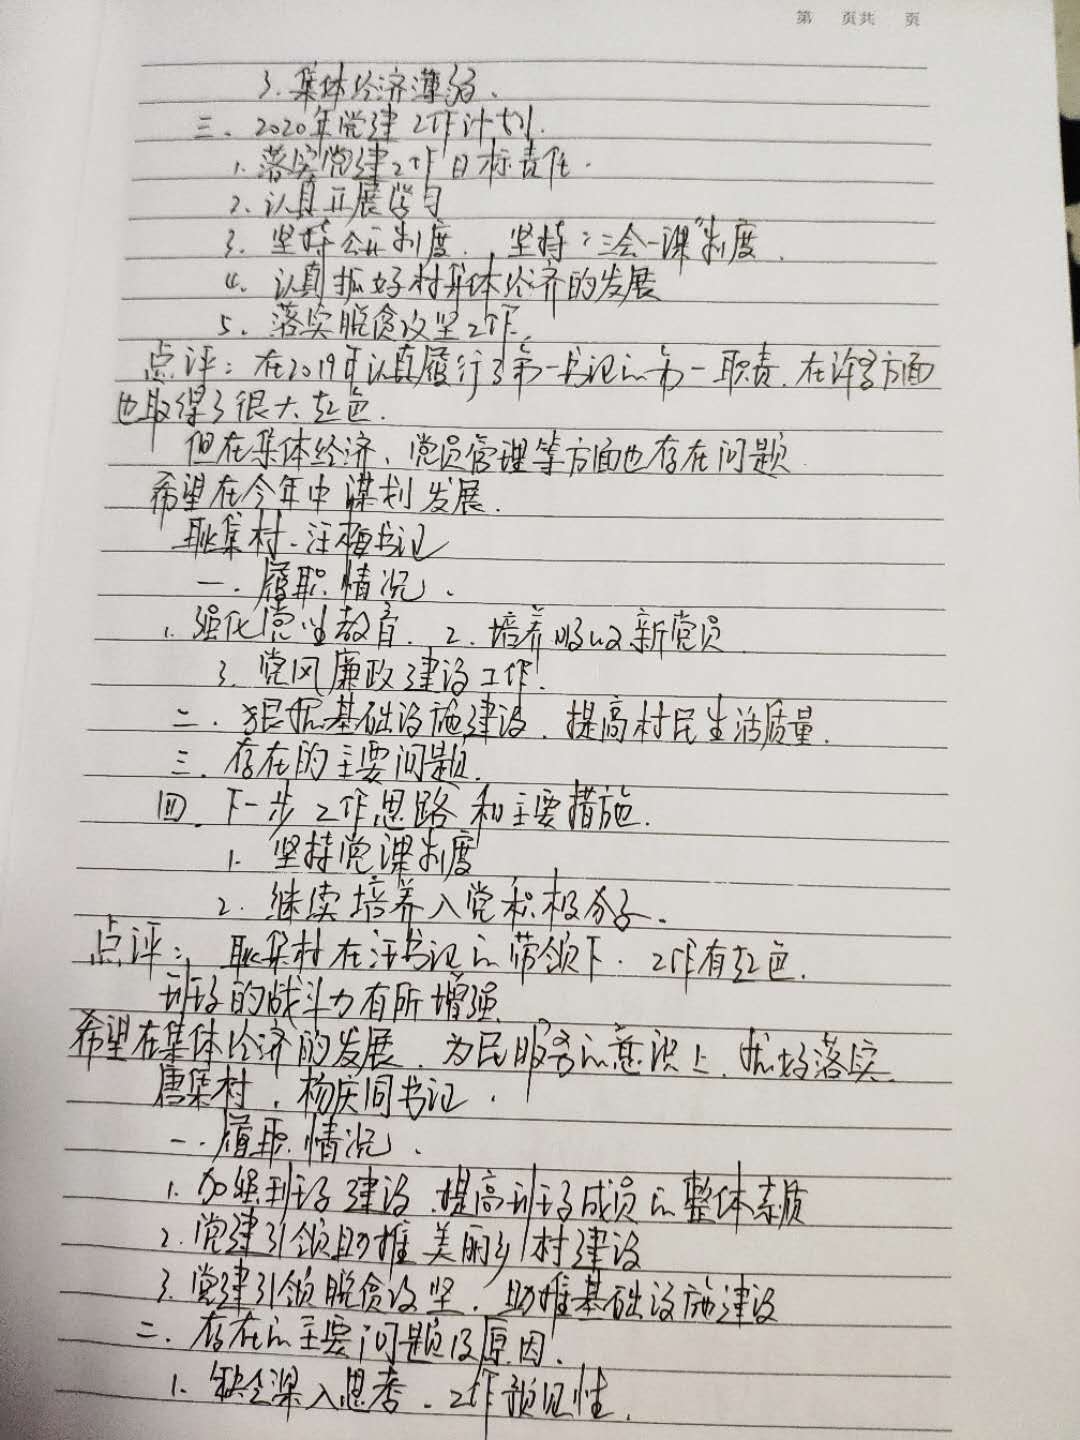 第 页共 页
3. 集体经济薄弱.
三. 2020年党建工作计划.
1. 落实党建工作目标责任.
2. 认真开展学习
3. 坚持公开制度. 坚持“三会一课”制度.
4. 认真抓好村集体经济的发展
5. 落实脱贫攻坚工作.
点评: 在2019年认真履行了第一书记的第一职责. 在许多方面
也取得了很大起色.
但在集体经济、党员管理等方面也存在问题
希望在今年中谋划发展.
耿集村. 汪梅书记
一. 履职情况.
1. 强化党性教育. 2. 培养吸收新党员
3. 党风廉政建设工作.
二. 狠抓基础设施建设. 提高村民生活质量.
三. 存在的主要问题.
四. 下一步工作思路和主要措施.
1. 坚持党课制度
2. 继续培养入党积极分子.
点评: 耿集村在汪书记的带领下. 工作有起色.
班子的战斗力有所增强.
希望在集体经济的发展. 为民服务的意识上. 抓好落实.
唐集村, 杨庆同书记.
一. 履职情况.
1. 加强班子建设. 提高班子成员的整体素质
2. 党建引领助推美丽乡村建设
3. 党建引领脱贫攻坚. 助推基础设施建设
二. 存在的主要问题及原因.
1. 缺乏深入思考. 工作预见性.